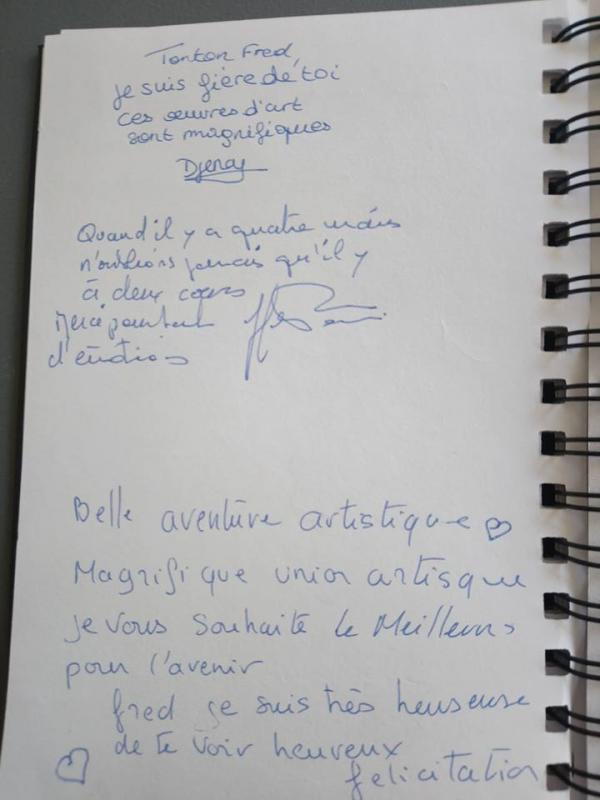 Tonton Fred,
je suis fière de toi
ces œuvres d'art
sont magnifiques
Djenay
Quand il y a quatre mains
n'oublions jamais qu'il y
à deux cœurs
Merci pour tant
d'émotions
Belle aventure artistique ♡
Magnifique union artisque
je vous souhaite le Meilleurs
pour l'avenir
fred je suis très heureuse
de te voir heureux
♡ felicitation